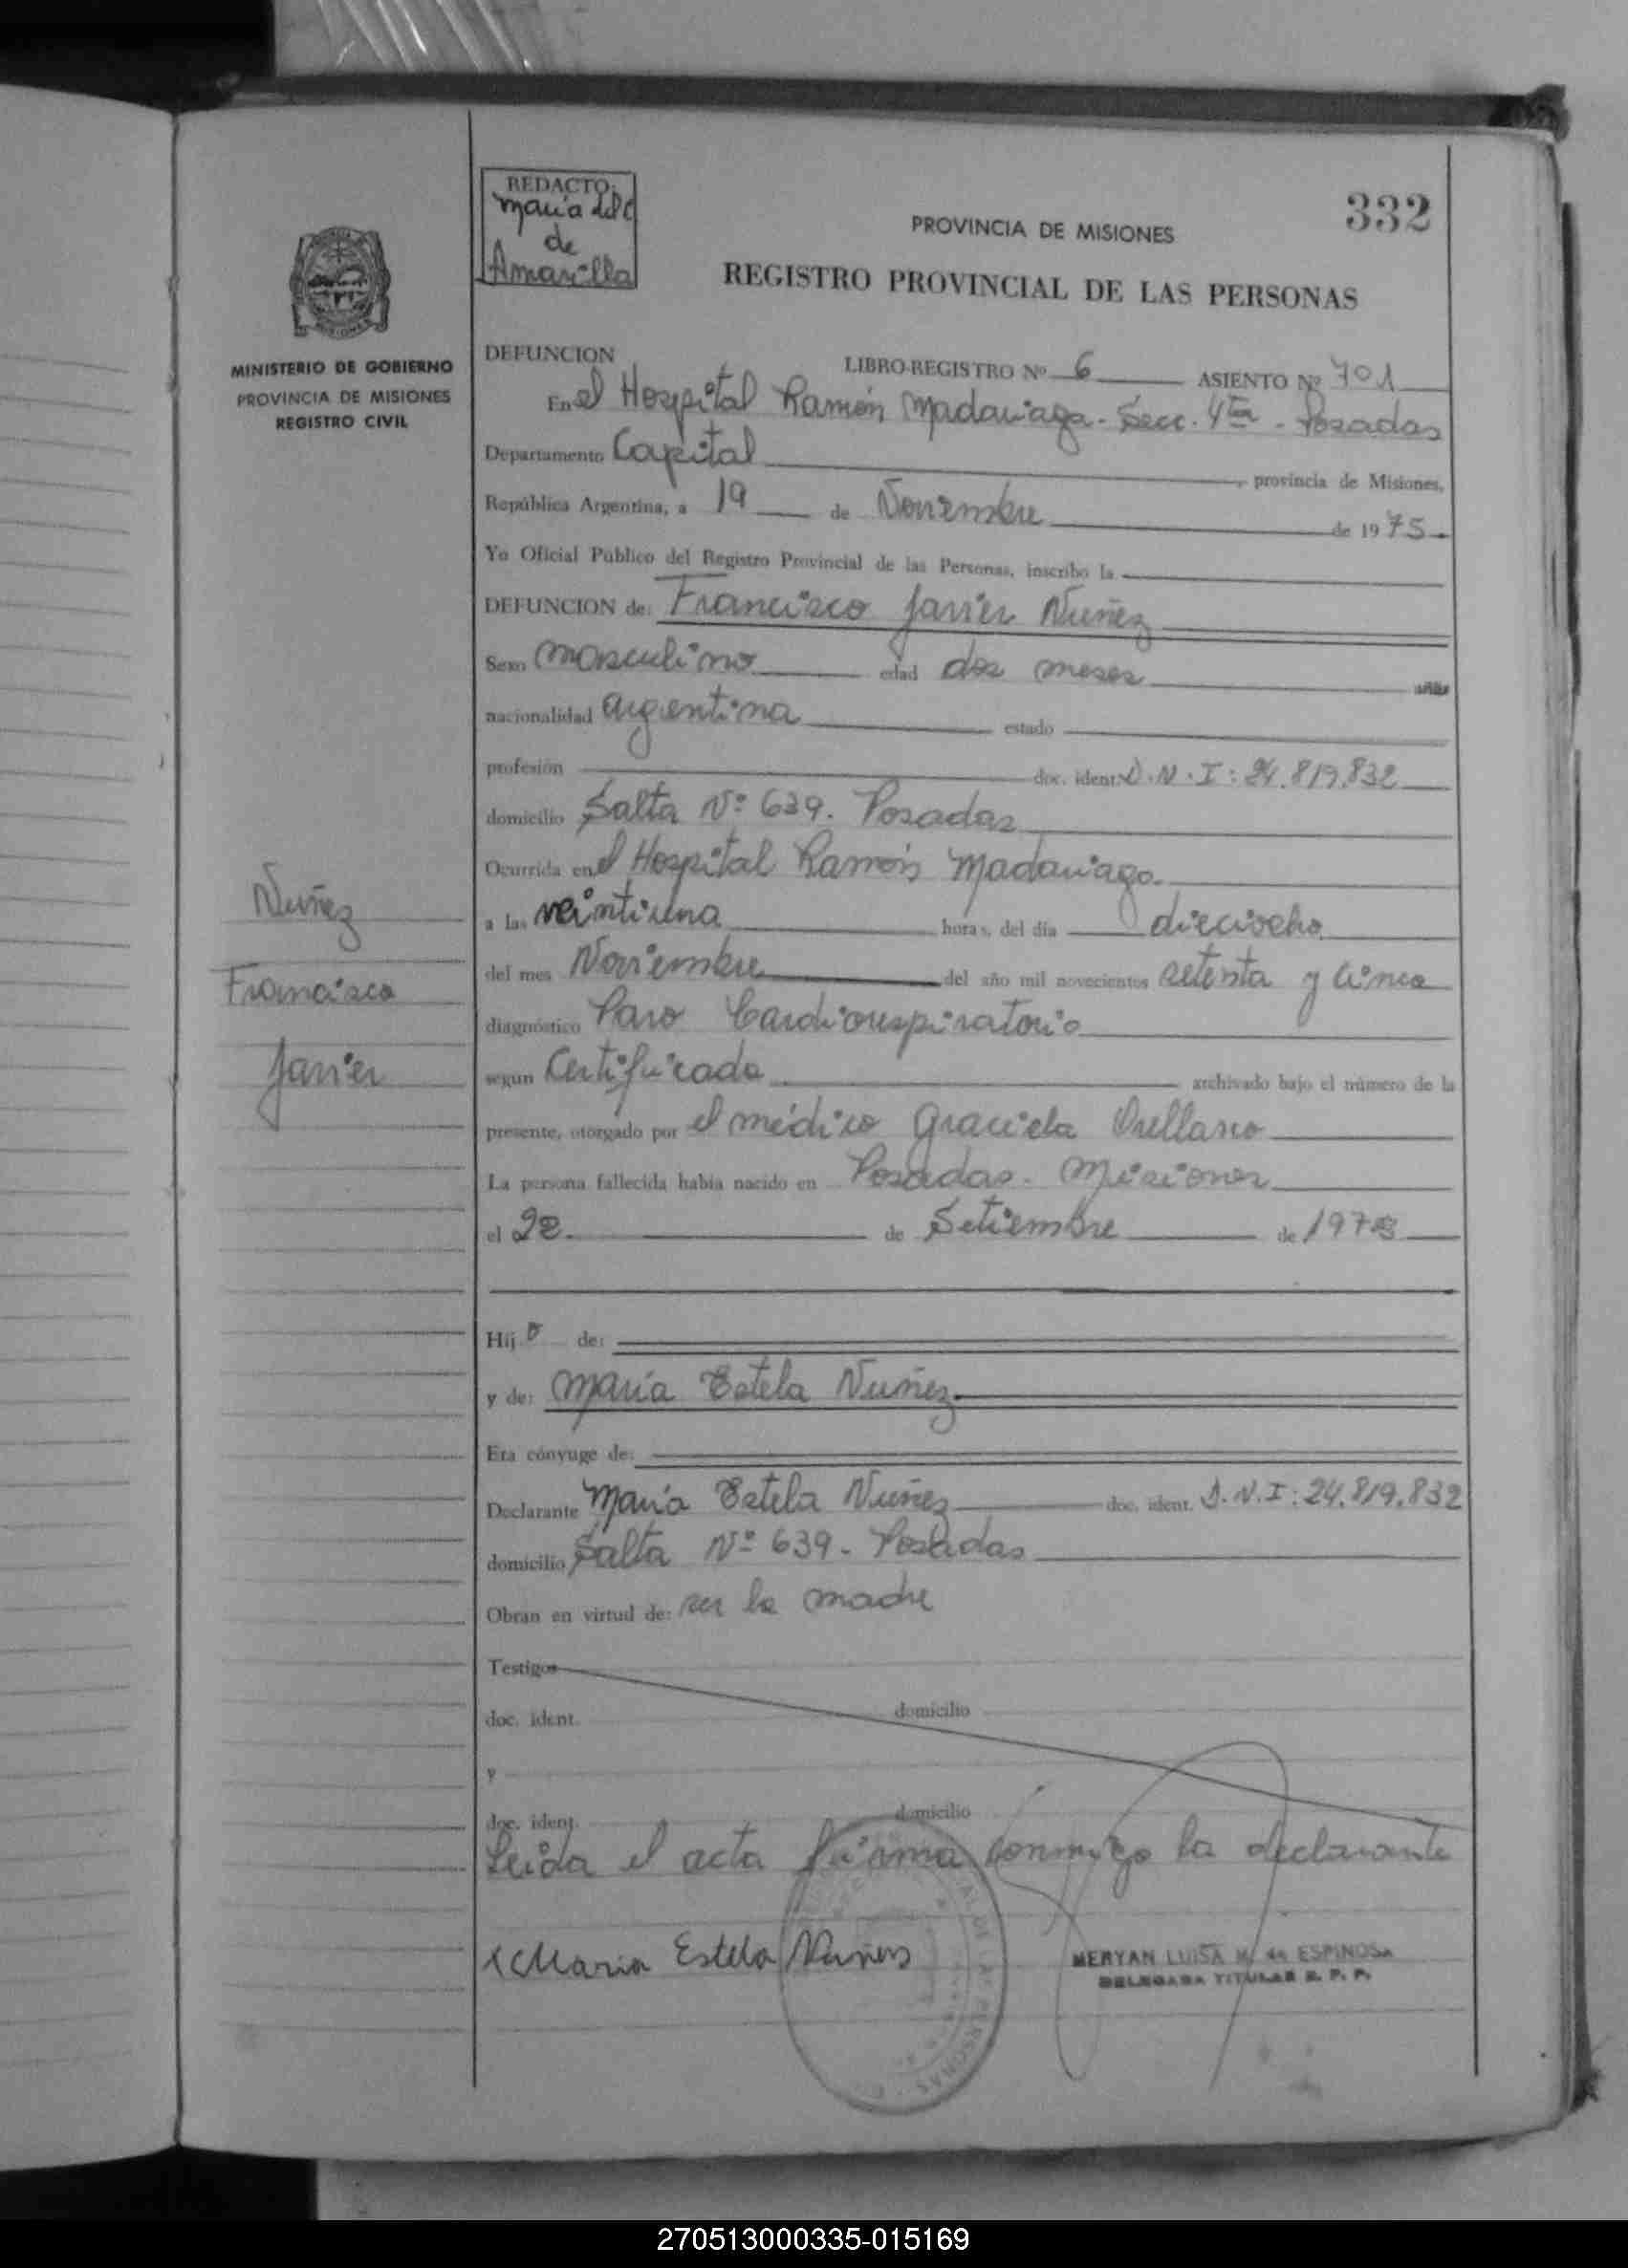 REDACTO:
Maria del C
de
Amarilla
332
PROVINCIA DE MISIONES
REGISTRO PROVINCIAL DE LAS PERSONAS
MINISTERIO DE GOBIERNO
PROVINCIA DE MISIONES
REGISTRO CIVIL
DEFUNCION LIBRO-REGISTRO Nº 6 ASIENTO Nº 701
En el Hospital Ramón Madariaga - Secc. 4ta - Posadas
Departamento Capital, provincia de Misiones,
República Argentina, a 19 de Noviembre de 1975
Yo Oficial Público del Registro Provincial de las Personas, inscribo la
DEFUNCION de: Francisco Javier Nuñez
Sexo masculino edad dos meses años
nacionalidad argentina estado
profesión doc. ident. D.N.I: 24.819.832
domicilio Salta Nº 639. Posadas
Ocurrida en el Hospital Ramón Madariaga
a las veintiuna horas, del día dieciocho
del mes Noviembre del año mil novecientos setenta y cinco
diagnóstico Paro Cardiorespiratorio
según Certificado archivado bajo el número de la
presente, otorgado por el médico Graciela Orellano
La persona fallecida había nacido en Posadas - Misiones
el 22 de Setiembre de
Hijo de:
y de: Maria Estela Nuñez
Era cónyuge de:
Declarante Maria Estela Nuñez doc. ident. D.N.I: 24.819.832
domicilio Salta Nº 639 - Posadas
Obran en virtud de: ser la madre
Testigos
doc. ident. domicilio
y
doc. ident. domicilio
Leida el acta firma conmigo la declarante
x Maria Estela Nuñes
MERYAN LUISA M. de ESPINOSA
DELEGADA TITULAR R. P. P.
Nuñez
Francisco
Javier
270513000335-015169